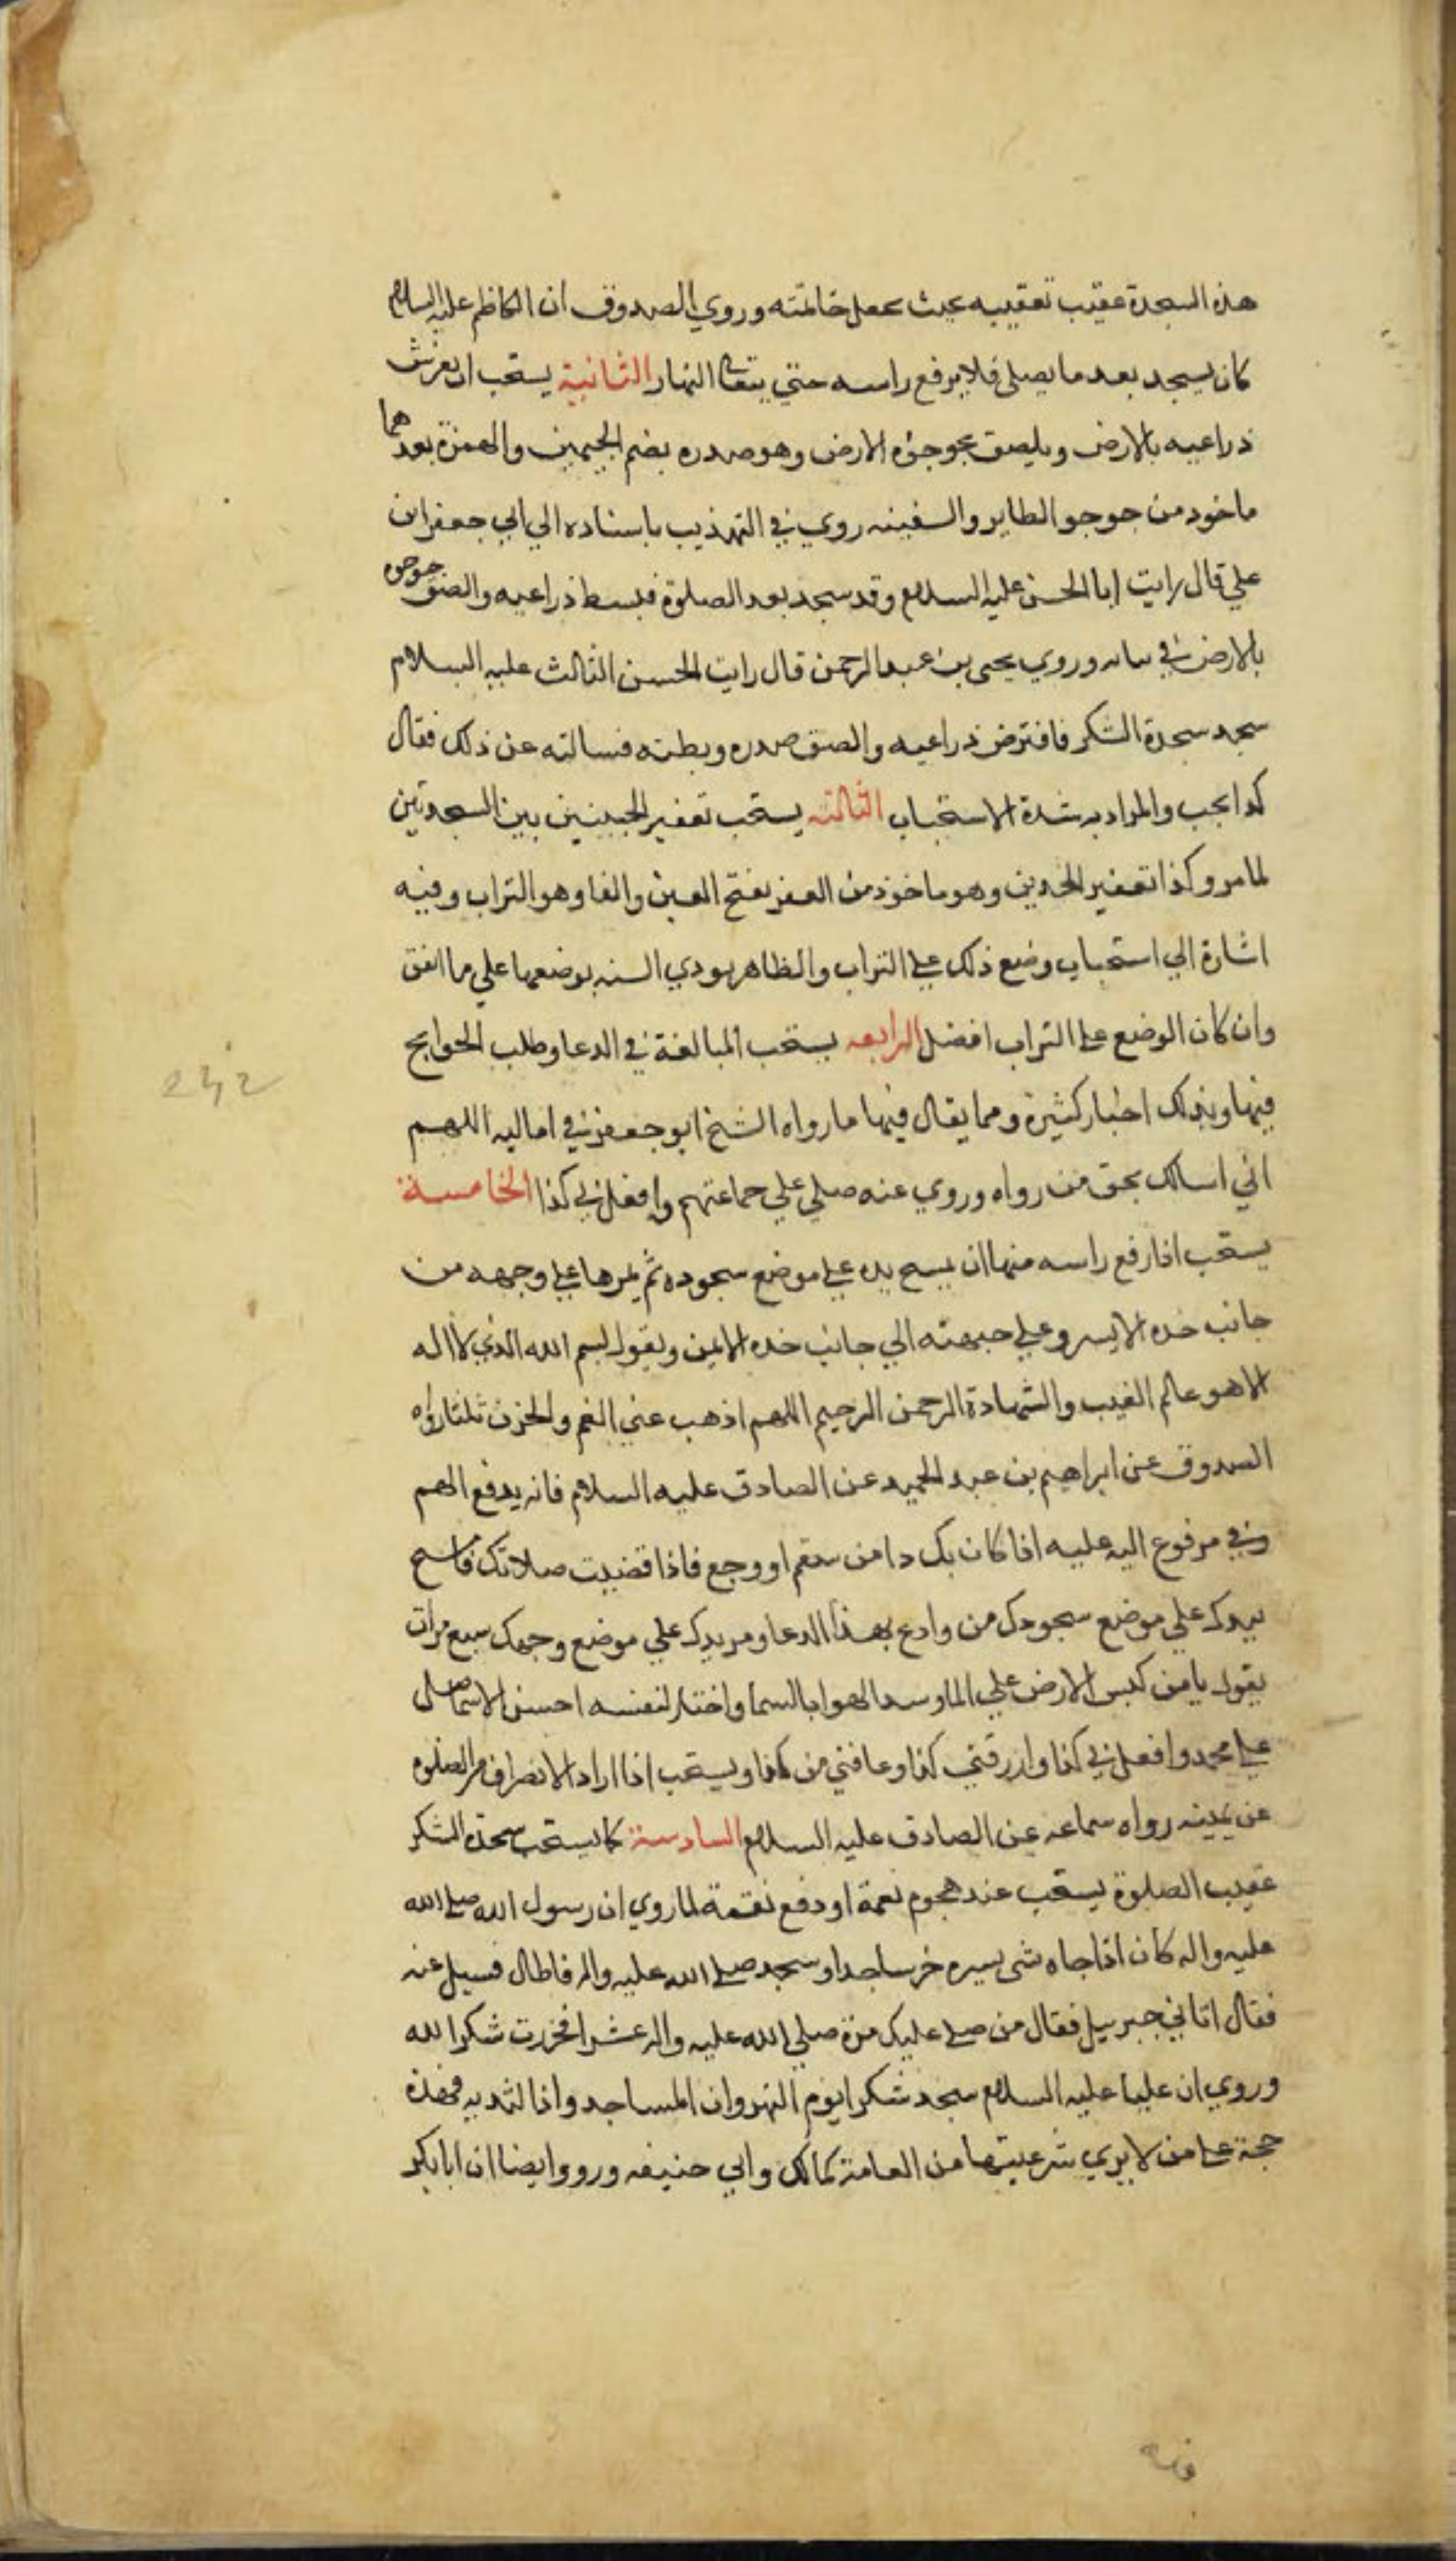 هذه السجدة عقيب تعقيبه بحيث يجعل خاتمته وروي الصدوق ان الكاظم عليه السلام
كان يسجد بعد ما يصلي فلا يرفع راسه حتي يتعالى النهار الثانية يستحب ان يفرش
ذراعيه بالارض ويلصق بجوجؤه الارض وهو صدره بضم الجيمين والهمزة بعدهما
ماخوذ من جوجو الطاير والسفينه روي في التهذيب باسناده الي ابي جعفر ابن
علي قال رايت ابا الحسن عليه السلام وقد سجد بعد الصلوة فبسط ذراعيه والصق جوجوه
بالارض في وروي يحيى بن عبد الرحمن قال رايت الحسن الثالث عليه السلام
سجد سجدة الشكر فافترض ذراعيه والصق صدره وبطنه فسالته عن ذلك فقال
كذا يجب والمراد به شدة الاستحباب الثالثه يستحب تعفير الجبينين بين السجدتين
لما مر وكذا تعفير الخدين وهو ماخوذ من العفر بفتح العين والفا وهو التراب وفيه
اشارة الي استحباب وضع ذلك علي التراب والظاهر تودي السنه بوضعها علي ما اتفق
وان كان الوضع علي التراب افضل الرابعه يستحب المبالغة في الدعا وطلب الحوايج
فيها وبذلك اخبار كثيرة ومما يقال فيها ما رواه الشيخ ابو جعفر في اماليه اللهم
اني اسالك بحق من رواه وروي عنه صلي علي جماعتهم وافعل لي كذا الخامسة
يستحب اذا رفع راسه منها ان يمسح يده علي موضع سجوده ثم يمرها علي وجهه من
جانب خده الايسر وعلي جبهته الي جانب خده الايمن ويقول بسم الله الذي لا اله
الا هو عالم الغيب والشهادة الرحمن الرحيم اللهم اذهب عني الغم والحزن ثلثا رواه
الصدوق عن ابراهيم بن عبد الحميد عن الصادق عليه السلام فانه يدفع الهم
وفي مرفوع اليه عليه اذا كان بك دا من سقم او وجع فاذا قضيت صلاتك فامسح
بيدك علي موضع سجودك من وادع بهذا الدعا ومر بيدك علي موضع وجعك سبع مرات
يقول يا من كبس الارض علي الما وسد الهوا بالسما واختار لنفسه احسن الاسما صل
علي محمد وافعل لي كذا وارزقني كذا وعافني من كذا ويستحب اذا اراد الانصراف من الصلوه
عن يمينه رواه سماعه عن الصادق عليه السلام السادسة كما يستحب سجدة الشكر
عقيب الصلوة يستحب عند هجوم نعمة او دفع نقمة لما روي ان رسول الله صلي الله
عليه واله كان اذا جاه شي يسره خر ساجدا وسجد صلي الله عليه واله فاطال فسيل عنه
فقال اتاني جبرييل فقال من صلي عليك مرة صلي الله عليه واله عشرا فخررت شكرا لله
وروي ان عليا عليه السلام سجد شكرا يوم النهروان المساجد واذا الثديه فهذه
حجة علي من لا يري شرعيتها من العامة كمالك وابي حنيفه ورووا ايضا ان ابا بكر